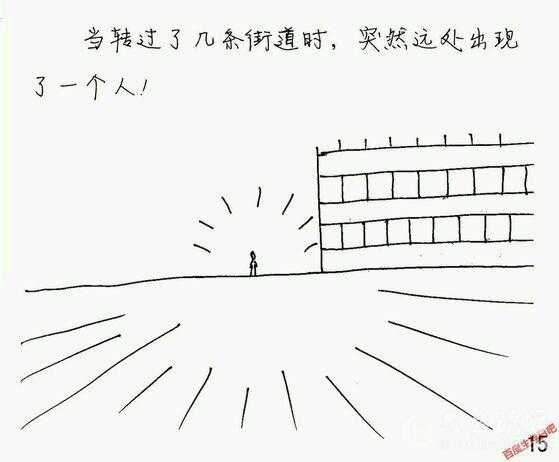 当转过了几条街道时，突然远处出现
了一个人！
15